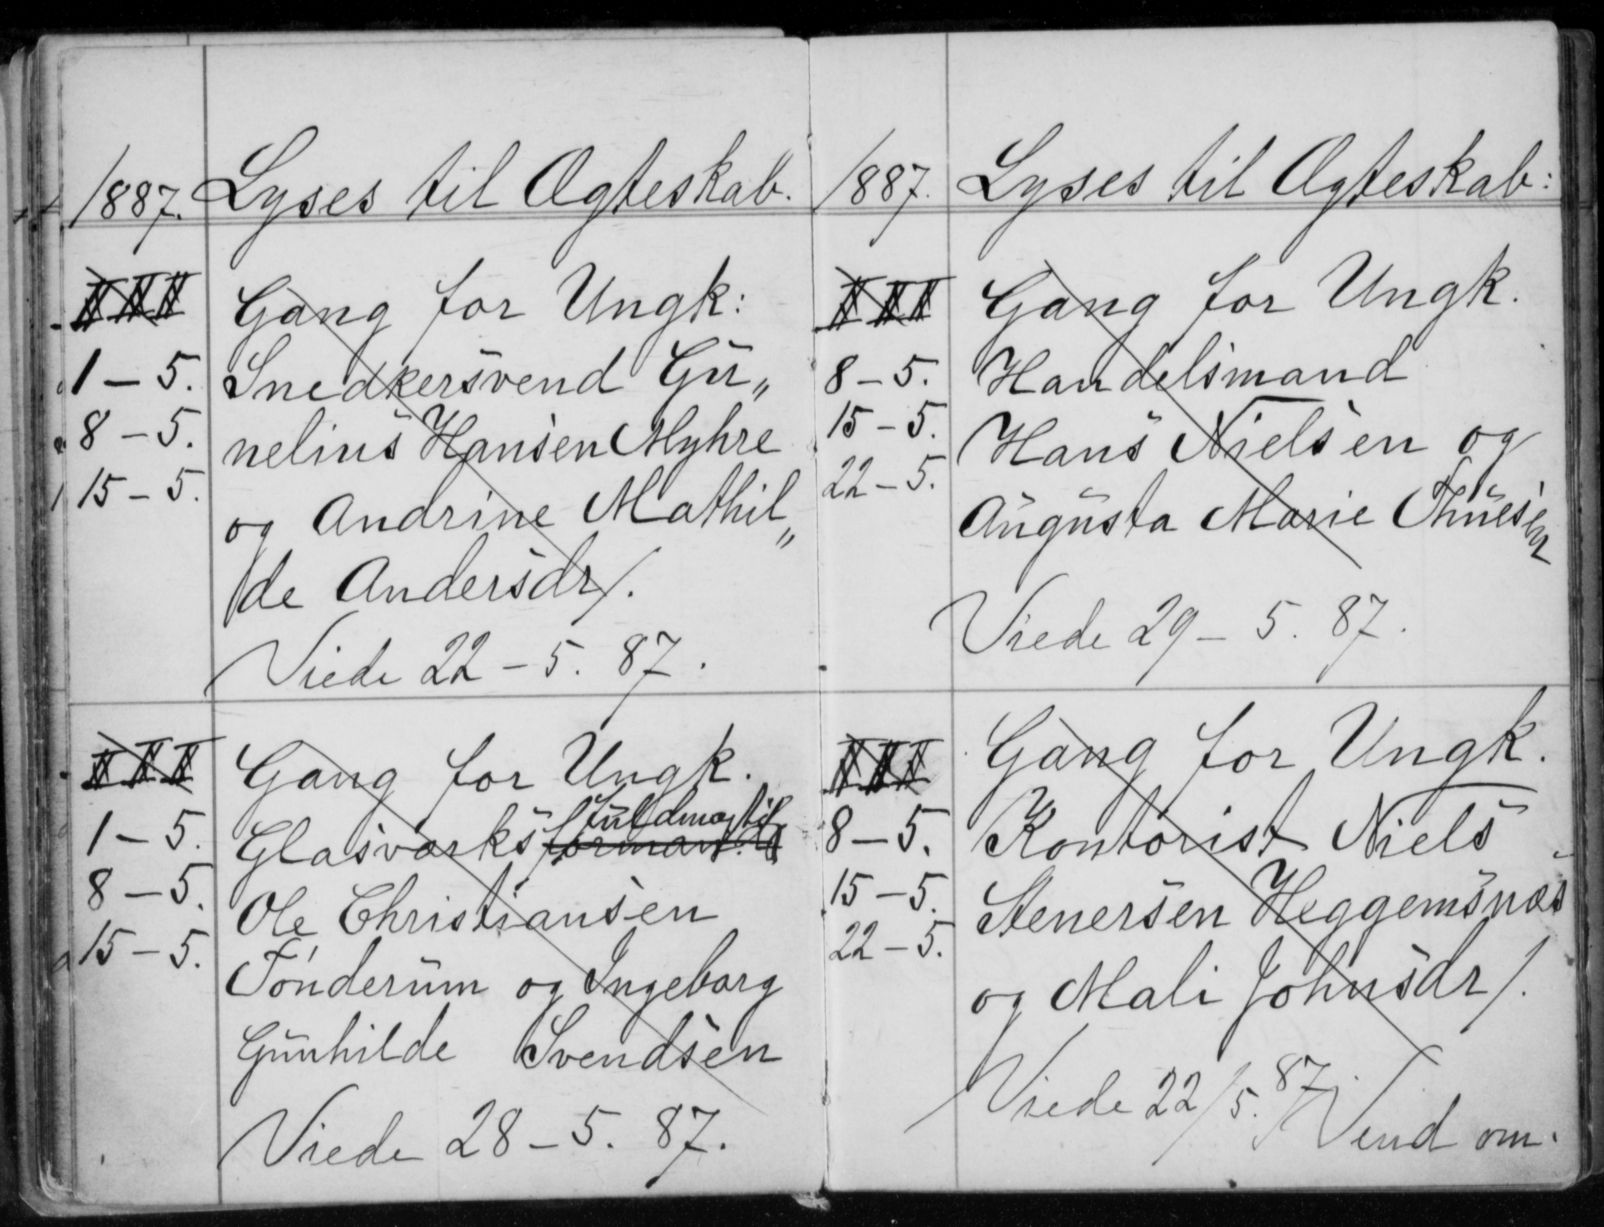 1887. Lyses til Ægteskab.
I II III Gang for Ungk:
1 – 5. Snedkersvend Gu„
8 – 5. nelius Hansen Myhre
15 – 5. og Andrine Mathil„
de Andersdr/.
Viede 22 – 5. 87.
I II III Gang for Ungk.
fuldmægtig
1 – 5. Glasværks formand
8 – 5. Ole Christiansen
15 – 5. Fønderum og Ingeborg
Gunhilde Svendsen
Viede 28 – 5. 87.
1887. Lyses til Ægteskab:
I II III Gang for Ungk.
8 – 5. Handelsmand
15 – 5. Hans Nielsen og
22 – 5. Augusta Marie Thuesen
Viede 29 – 5. 87.
I II III Gang for Ungk.
8 – 5. Kontorist Niels
15 – 5. Stenersen Heggemsnæs
22 – 5. og Mali Johnsdr/.
Viede 22/5. 87. Vend om.